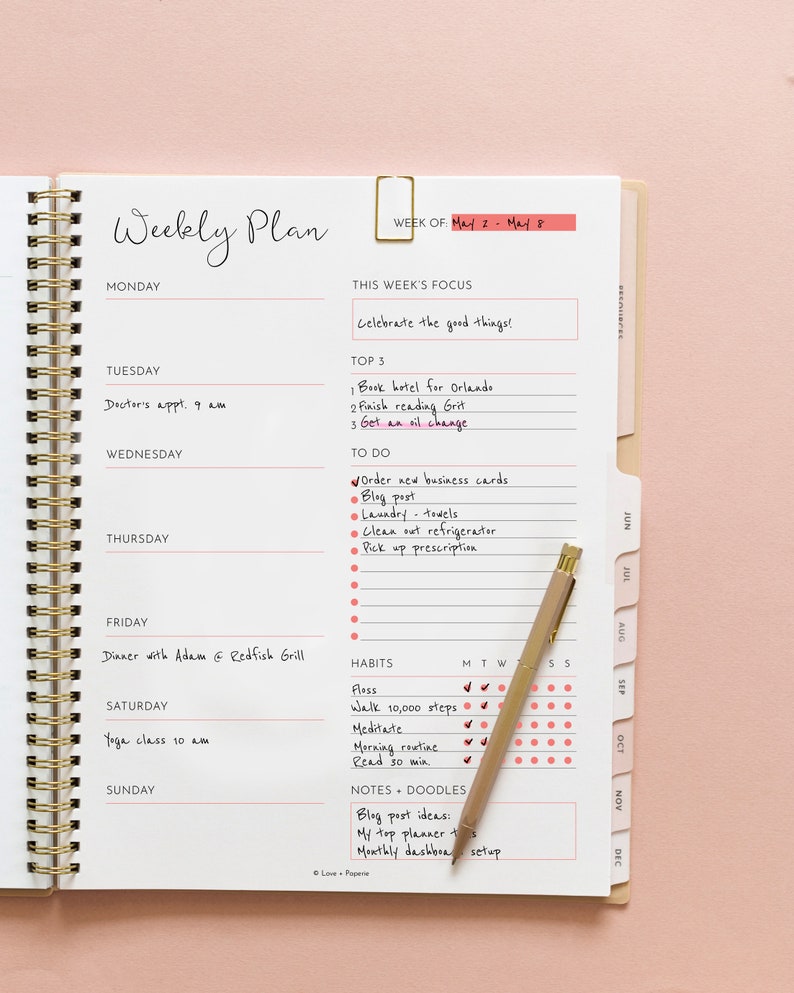 Weekly Plan
WEEK OF: May 2 - May 8
MONDAY
TUESDAY
Doctor's appt. 9 am
WEDNESDAY
THURSDAY
FRIDAY
Dinner with Adam @ Redfish Grill
SATURDAY
Yoga class 10 am
SUNDAY
THIS WEEK'S FOCUS
Celebrate the good things!
TOP 3
1 Book hotel for Orlando
2 Finish reading Grit
3 Get an oil change
TO DO
Order new business cards
Blog post
Laundry - towels
Clean out refrigerator
Pick up prescription
HABITS M T W T S S
Floss
Walk 10,000 steps
Meditate
Morning routine
Read 30 min.
NOTES + DOODLES
Blog post ideas:
My top planner
Monthly setup
© Love + Paperie
RESOURCES
JUN
JUL
AUG
SEP
OCT
NOV
DEC